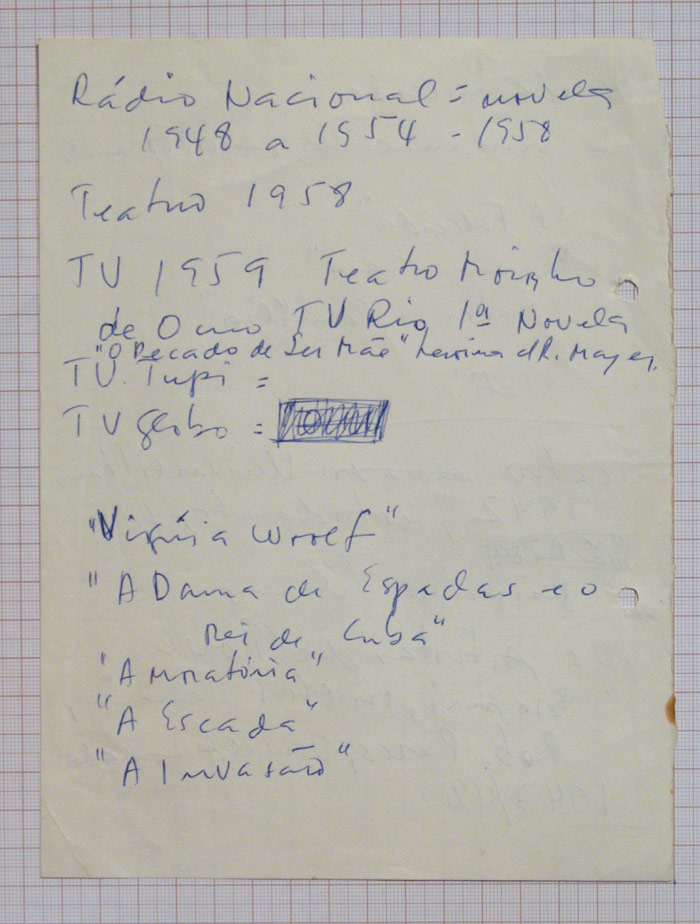 Rádio Nacional = novela
1948 a 1954 - 1958
Teatro 1958
TV 1959 Teatro Moinho
de Ouro TV Rio 1ª Novela
"O Pecado de Ser Mãe" heroina d R. Mayer.
TV. Tupi =
TV Globo =
"Virgínia Woolf"
"A Dama de Espadas e o
Rei de Cuba"
"A moratória"
"A Escada"
"A Invasão"